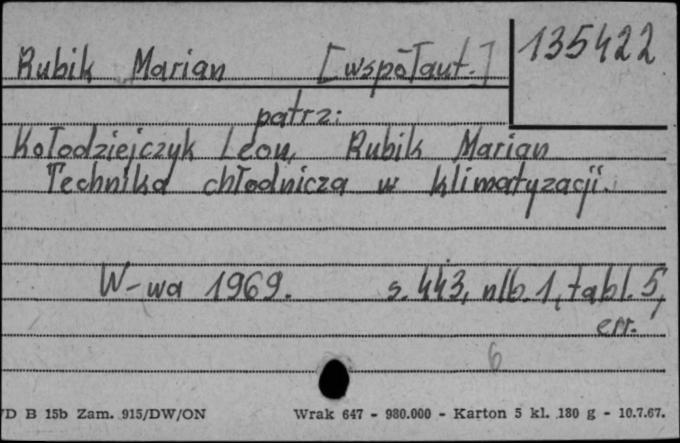 135422
Rubik Marian [współaut.]
patrz:
Kołodziejczyk Leon, Rubik Marian
Technika chłodnicza w klimatyzacji.
W-wa 1969. s. 443, nlb. 1, tabl. 5,
err.
6
D B 15b Zam. 915/DW/ON Wrak 647 - 980.000 - Karton 5 kl. 180 g - 10.7.67.